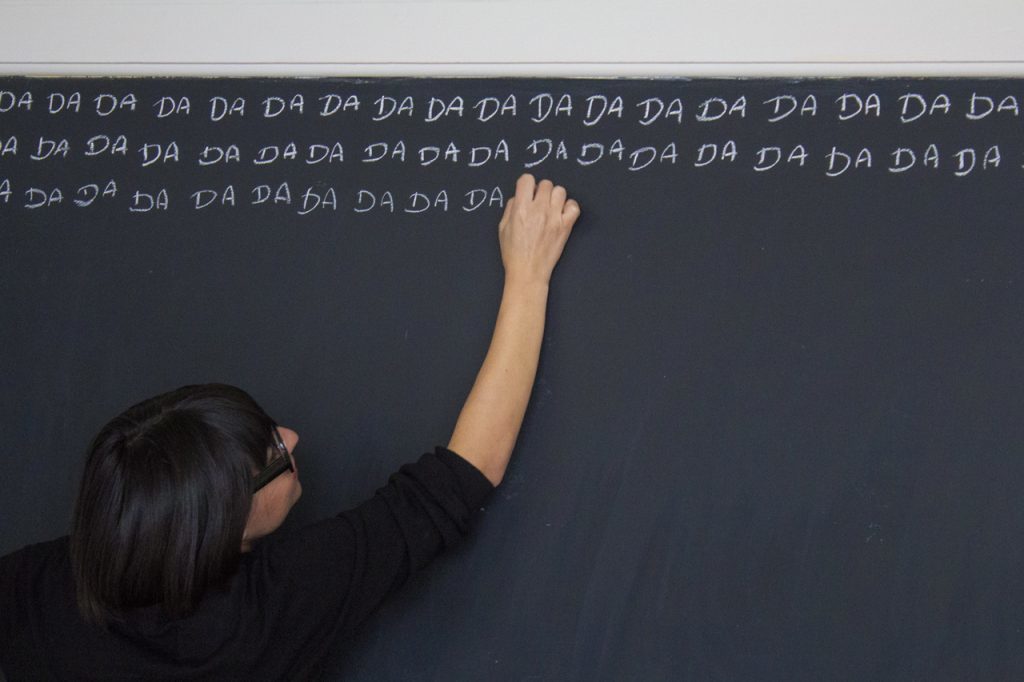 DA DA DA DA DA DA DA DA DA DA DA DA DA DA DA DA DA DA
A DA DA DA DA DA DA DA DA DA DA DA DA DA DA DA DA DA
A DA DA DA DA DA DA DA DA DA